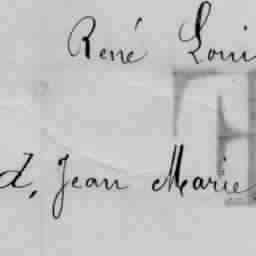 René Loui
d, Jean Marie